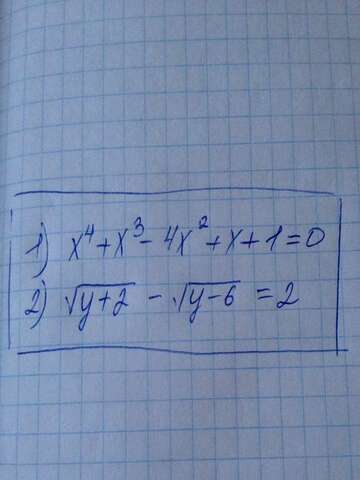 1) x⁴+x³-4x²+x+1=0
2) √(y+2) - √(y-6) = 2